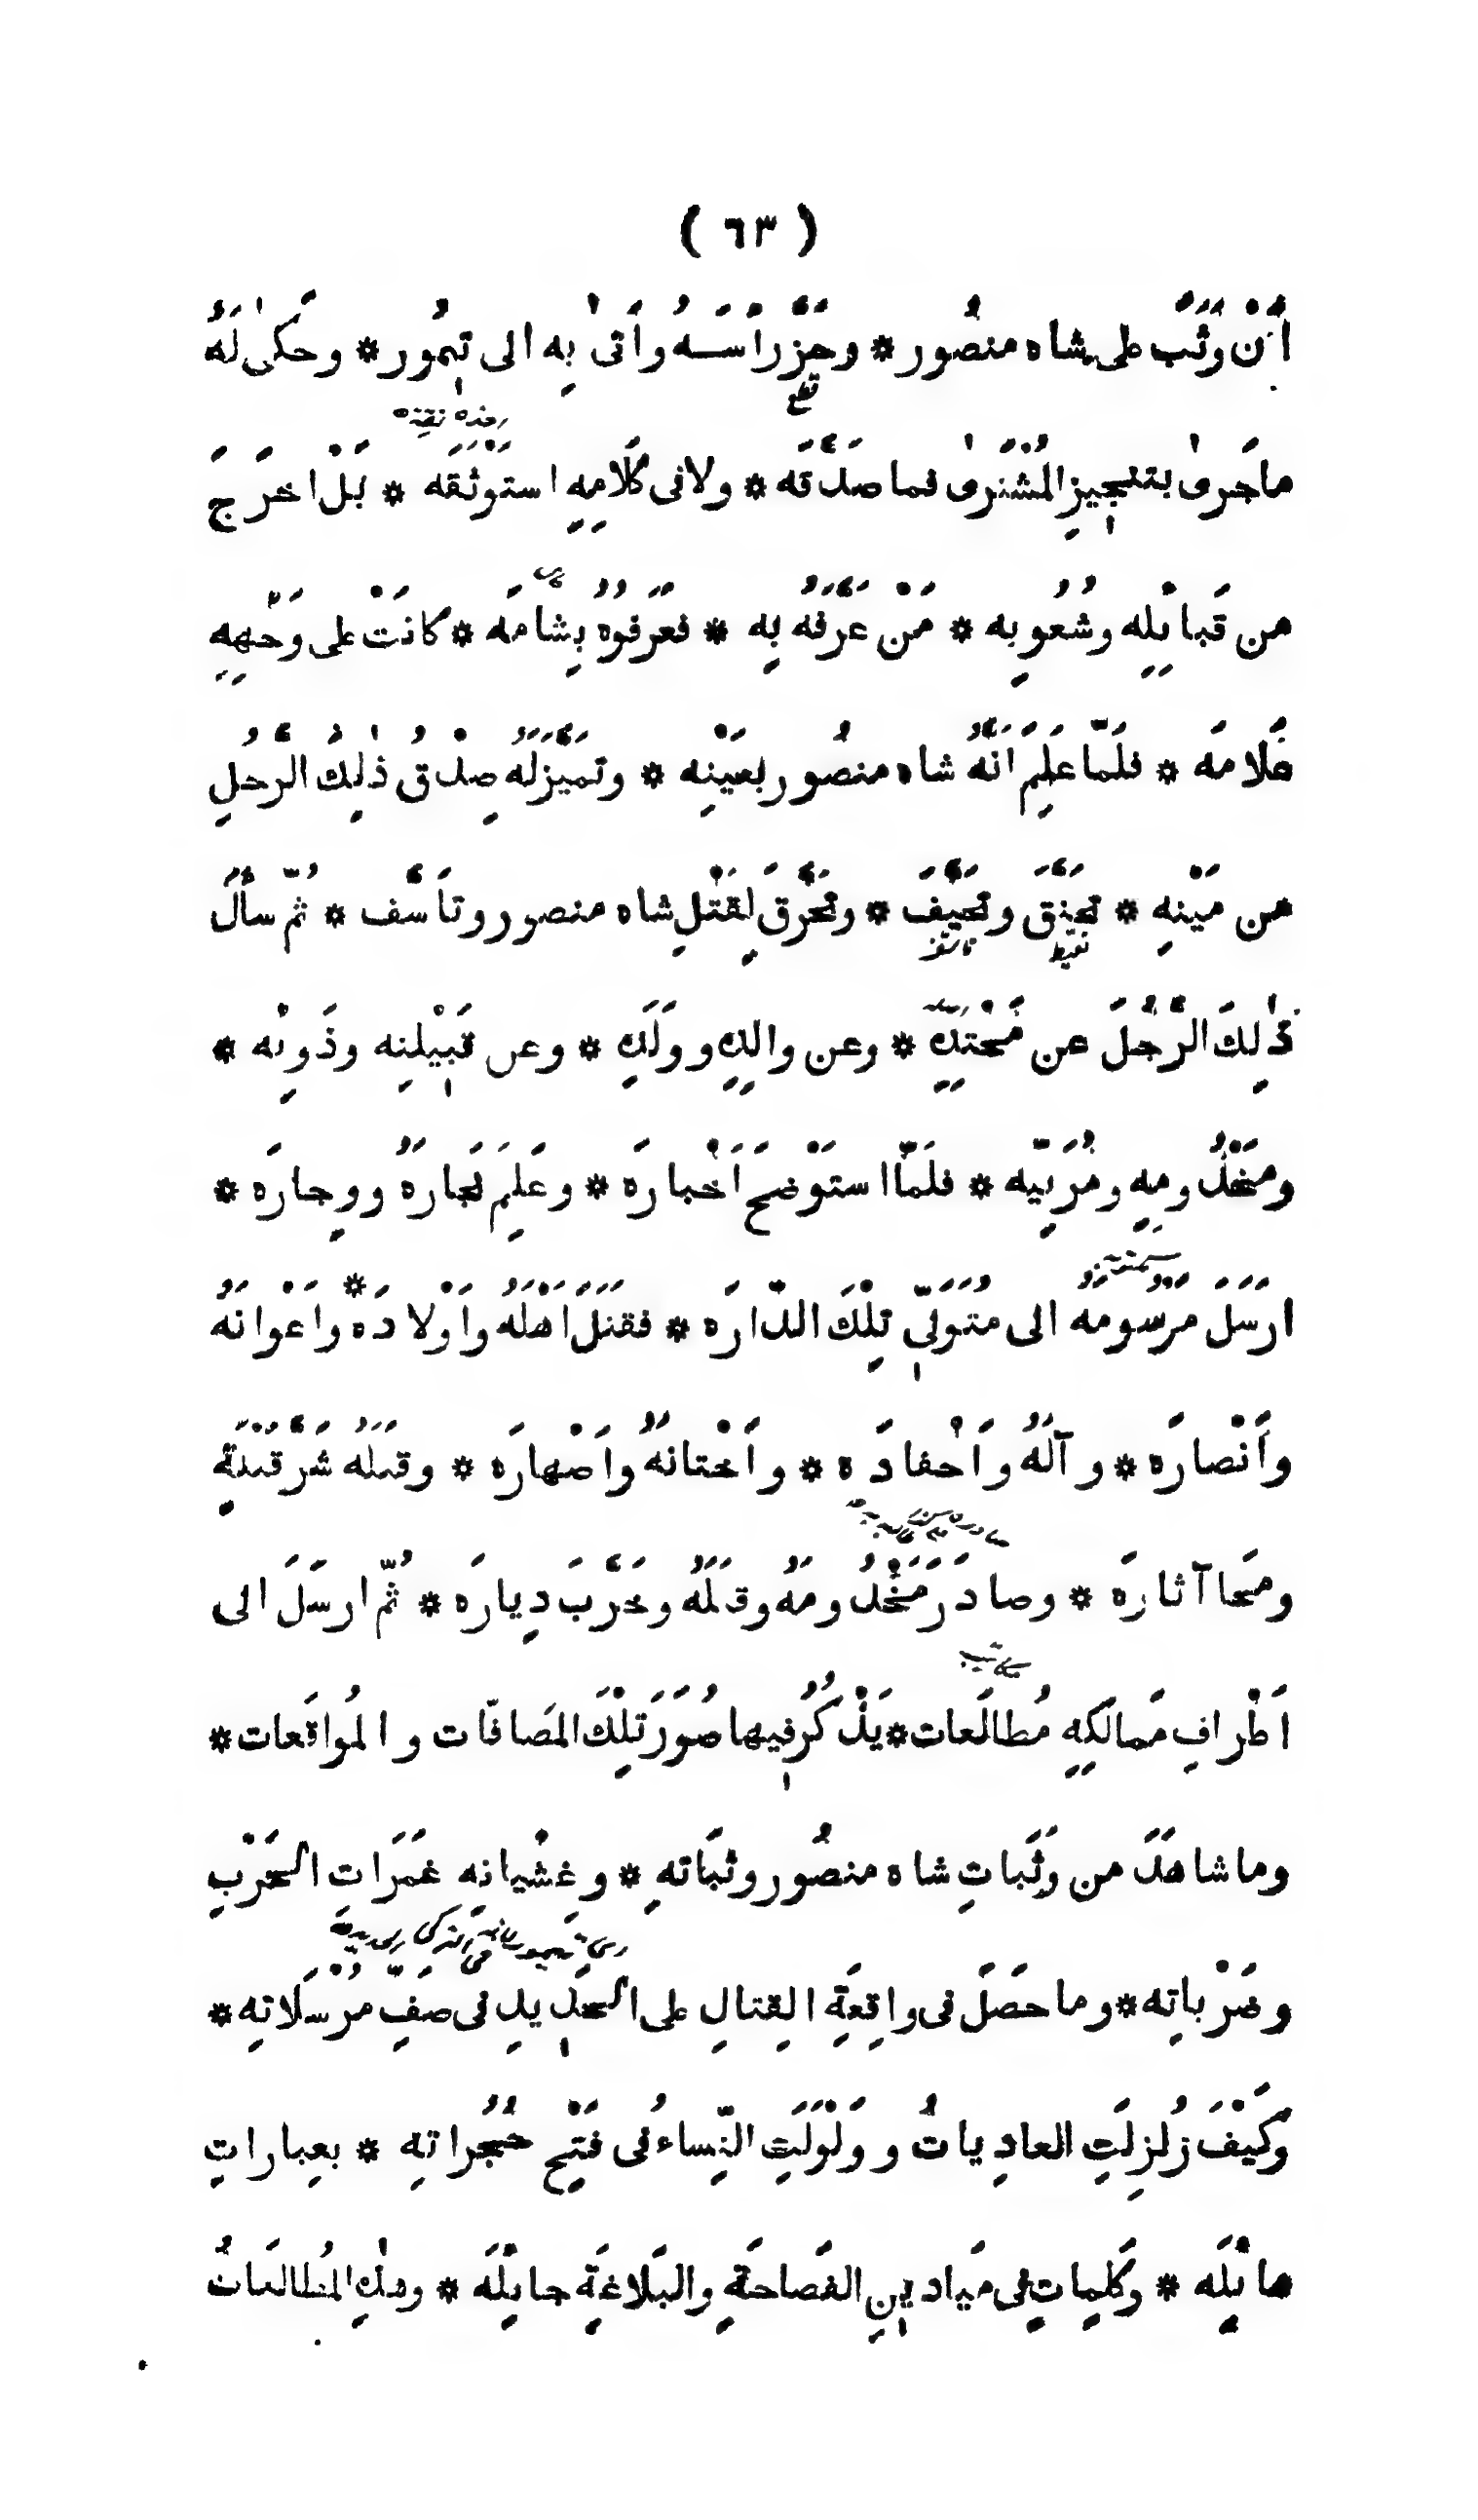 ( ٦٣ )
أَنْ وَثَبَ على شاه منصُور * وحَزَّ رَأسَهُ وأَتىٰ بِه الى تيمُور * وحَكىٰ لَهُ
ماجَرىٰ بتنجيزِ المُشْتَرىٰ فما صَدَّقَه * ولا فى كَلامِهِ استَوْثَقَه * بَلْ اخرَجَ
من قَبائِلِه وشُعُوبِه * مَنْ عَرَّفَهُ بِه * فعَرَفوُهُ بِشامَه * كانَتْ على وَجْهِهِ
عَلامَه * فلَمّا عَلِمَ اَنَّهُ شاه منصُور بعَيْنِه * وتَمَيَّزَ لَهُ صِدْقُ ذٰلِكَ الرَّجُلِ
من مَيْنِه * تحَزَّقَ وتحَيَّفَ * وتحَرَّقَ لِقَتْلِ شاه منصور وتاَسَّف * ثُمّ سأَلَ
ذٰلِكَ الرَّجُلَ عن مَحْتِدِه * وعن والدِه ووَلَدِه * وعن قَبِيْلتِه وذَوِيْه *
ومَخْدُومِه ومُرَبّيه * فلَمّا استَوْضحَ اَخْبارَه * وعَلِمَ نجارَهُ ووِجارَه *
ارسَلَ مَرْسُومَهُ الى مُتَوَلّى تِلْكَ الدّارَه * فقَتَلَ اَهْلَهُ واَوْلادَهُ * واَعْوانَهُ
واَنْصارَه * وآلَهُ واَحْفادَه * واَخْتانَهُ واَصْهارَه * وقتَلَهُ شَرَّ قَتْلَةٍ
ومَحا آثارَه * وصادَرَ مَخْدُومَهُ وقتَلَهُ وخَرَّبَ دِيارَه * ثُمّ ارسَلَ الى
اَطْرافِ مَمالكِهِ مُطالَعات * يَذْكُرُ فيها صُوَرَ تِلْكَ المَصافات والمُواقَعات *
وما شاهَدَ من وَثَباتِ شاه منصُور وثَباتهِ * وغِشْيانِه غَمَراتِ الحَرْبِ
وضَرْباتِه * وما حصَلَ فى واقِعَةِ القِتالِ على الحَديدِ فى صَفِّ مُرْسَلاتِه *
وكَيْفَ زُلزِلَتِ العادِياتُ ووَلْوَلَتِ النِّساءُ فى فتْحِ حُجُراتِه * بعِباراتٍ
هائِلَه * وكَلِماتٍ فى مَيادينِ الفَصاحَةِ والبَلاغَةِ جائِلَه * وهذِه المُطالعاتُ